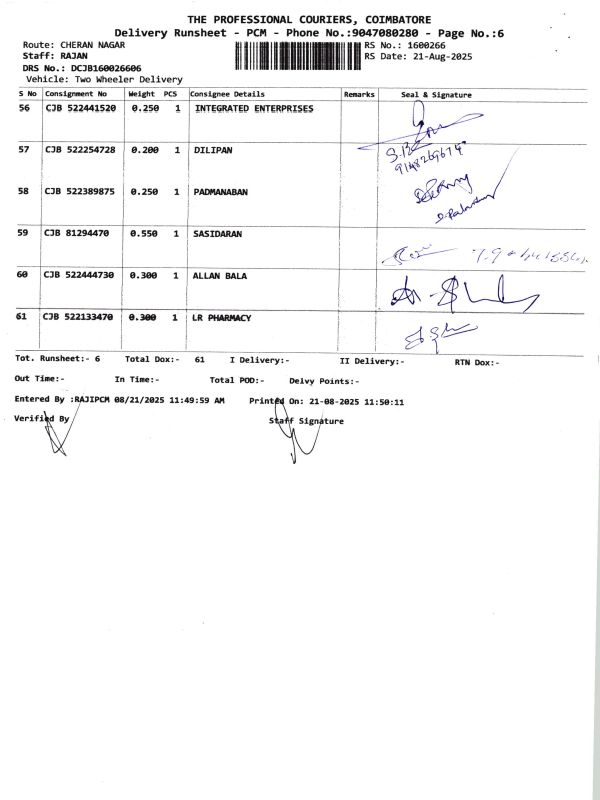 THE PROFESSIONAL COURIERS, COIMBATORE
Delivery Runsheet - PCM - Phone No.:9047080280 - Page No.:6
Route: CHERAN NAGAR RS No.: 1600266
Staff: RAJAN RS Date: 21-Aug-2025
DRS No.: DCJB160026606
Vehicle: Two Wheeler Delivery
S No Consignment No Weight PCS Consignee Details Remarks Seal & Signature
56 CJB 522441520 0.250 1 INTEGRATED ENTERPRISES
57 CJB 522254728 0.200 1 DILIPAN
58 CJB 522389875 0.250 1 PADMANABAN
59 CJB 81294470 0.550 1 SASIDARAN
60 CJB 522444730 0.300 1 ALLAN BALA
61 CJB 522133470 0.300 1 LR PHARMACY
Tot. Runsheet:- 6 Total Dox:- 61 I Delivery:- II Delivery:- RTN Dox:-
Out Time:- In Time:- Total POD:- Delvy Points:-
Entered By :RAJIPCM 08/21/2025 11:49:59 AM Printed On: 21-08-2025 11:50:11
Verified By Staff Signature